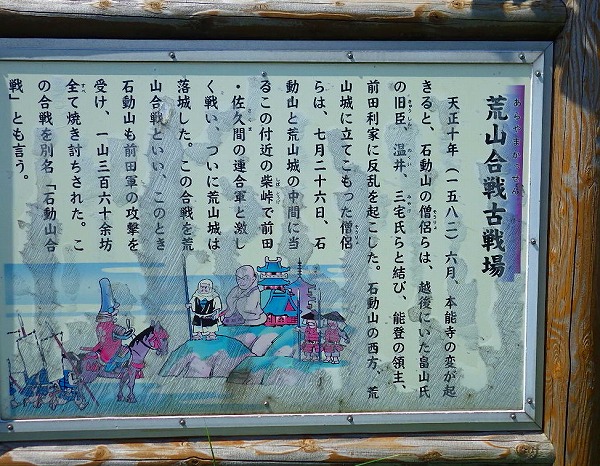 荒山合戦古戦場
あらやまかっせん
天正十年（一五八二）六月、本能寺の変が起
きると、石動山の僧侶らは、越後にいた畠山氏
の旧臣、温井、三宅氏らと結び、能登の領主、
前田利家に反乱を起こした。石動山の西方、荒
山城に立てこもった僧侶
らは、七月二十六日、石
動山と荒山城の中間に当
るこの付近の柴峠で前田
・佐久間の連合軍と激し
く戦い、ついに荒山城は
落城した。この合戦を荒
山合戦といい、このとき
石動山も前田軍の攻撃を
受け、一山三百六十余坊
全て焼き討ちされた。こ
の合戦を別名「石動山合
戦」とも言う。